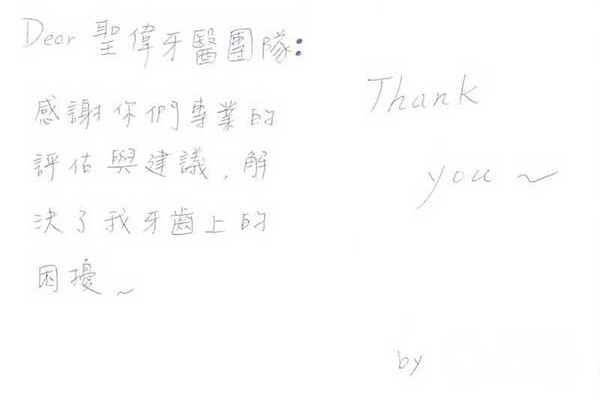 Dear 聖偉牙醫團隊:
感謝你們專業的
評估與建議, 解
決了我牙齒上的
困擾~
Thank
you~
by